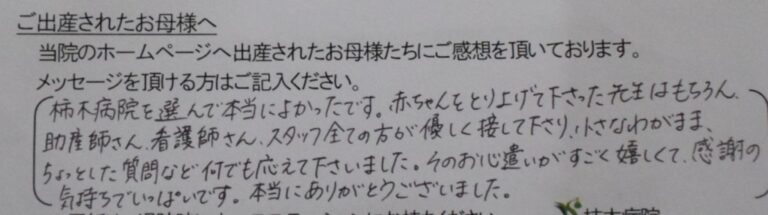 ご出産されたお母様へ
当院のホームページへ出産されたお母様たちにご感想を頂いております。
メッセージを頂ける方はご記入ください。
柿木病院を選んで本当によかったです。赤ちゃんをとり上げて下さった先生はもちろん、
助産師さん、看護師さん、スタッフ全ての方が優しく接して下さり、小さなわがまま、
ちょっとした質問など何でも応えて下さいました。そのお心遣いがすごく嬉しくて、感謝の
気持ちでいっぱいです。本当にありがとうございました。
柿木病院